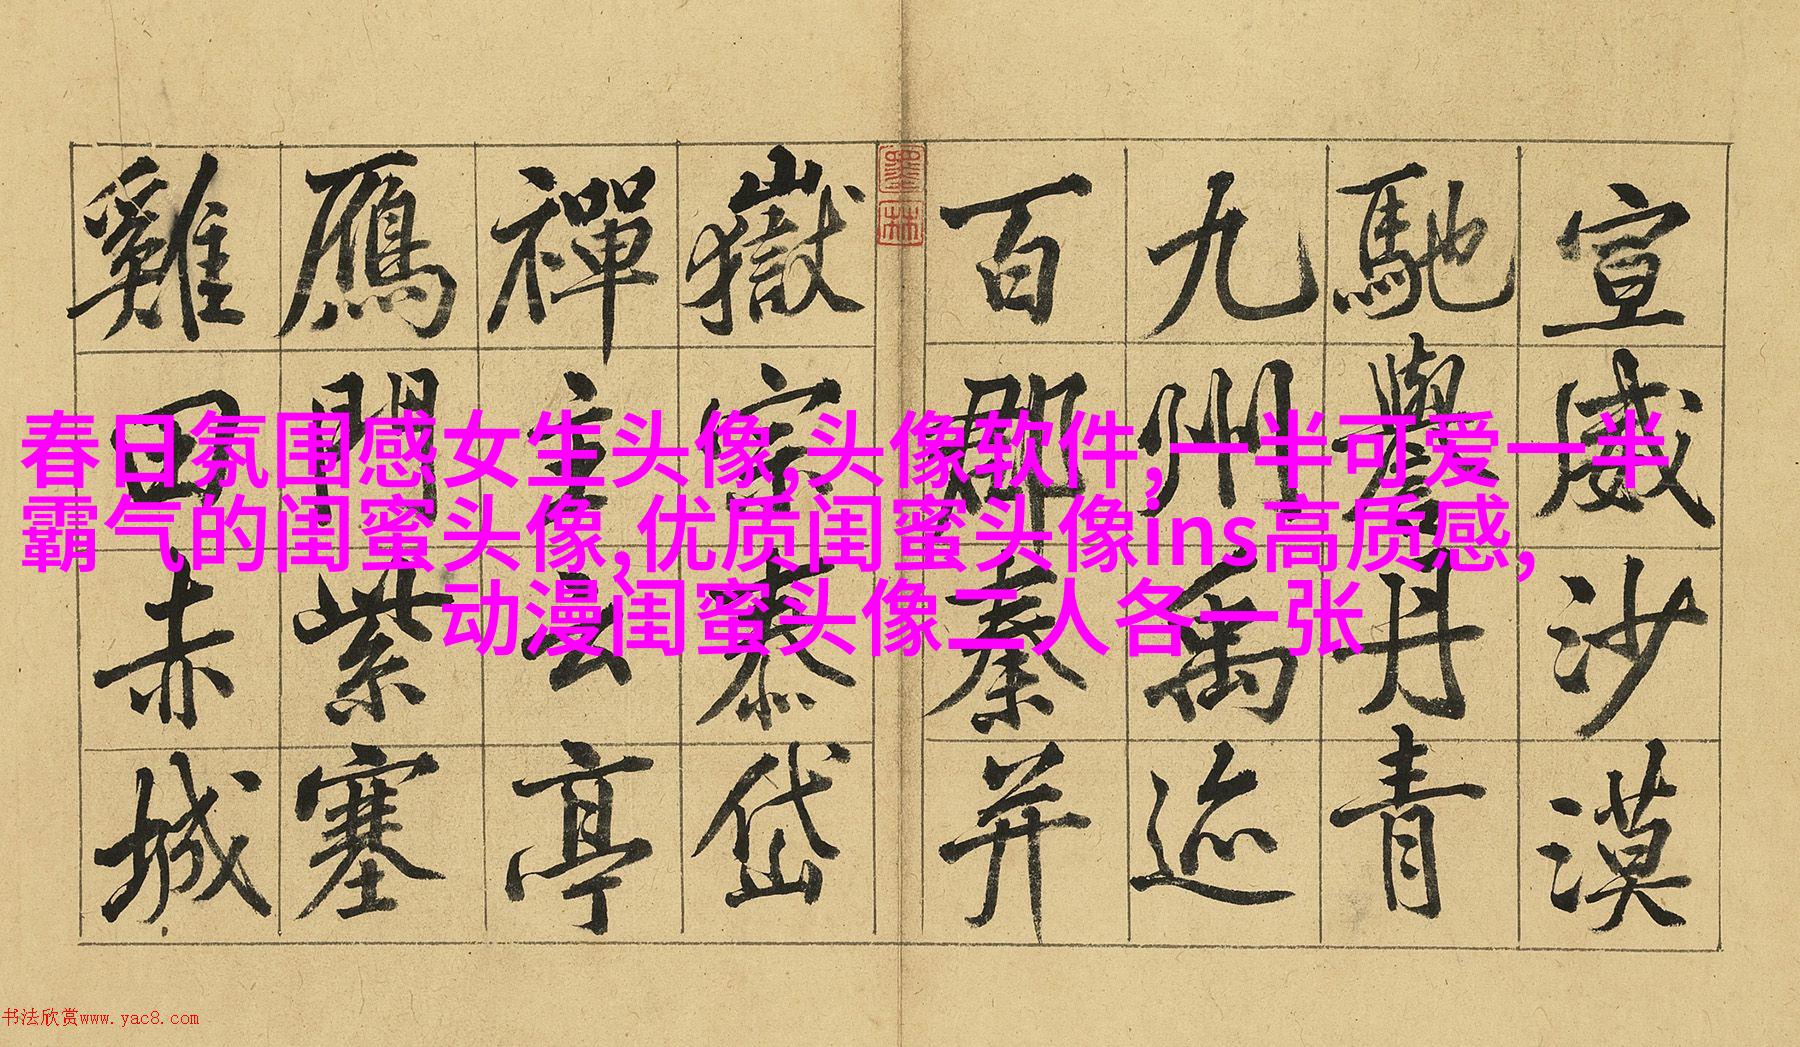 宣威沙漠
馳譽丹青
九州禹迹
百郡秦并
墨林
嶽宗泰岱
禪主云亭
鴈門紫塞
雞田赤城
春日氛围感女生头像,头像软件,一半可爱一半
霸气的闺蜜头像,优质闺蜜头像ins高质感,
动漫闺蜜头像二人各一张
书法欣赏www.yac8.com